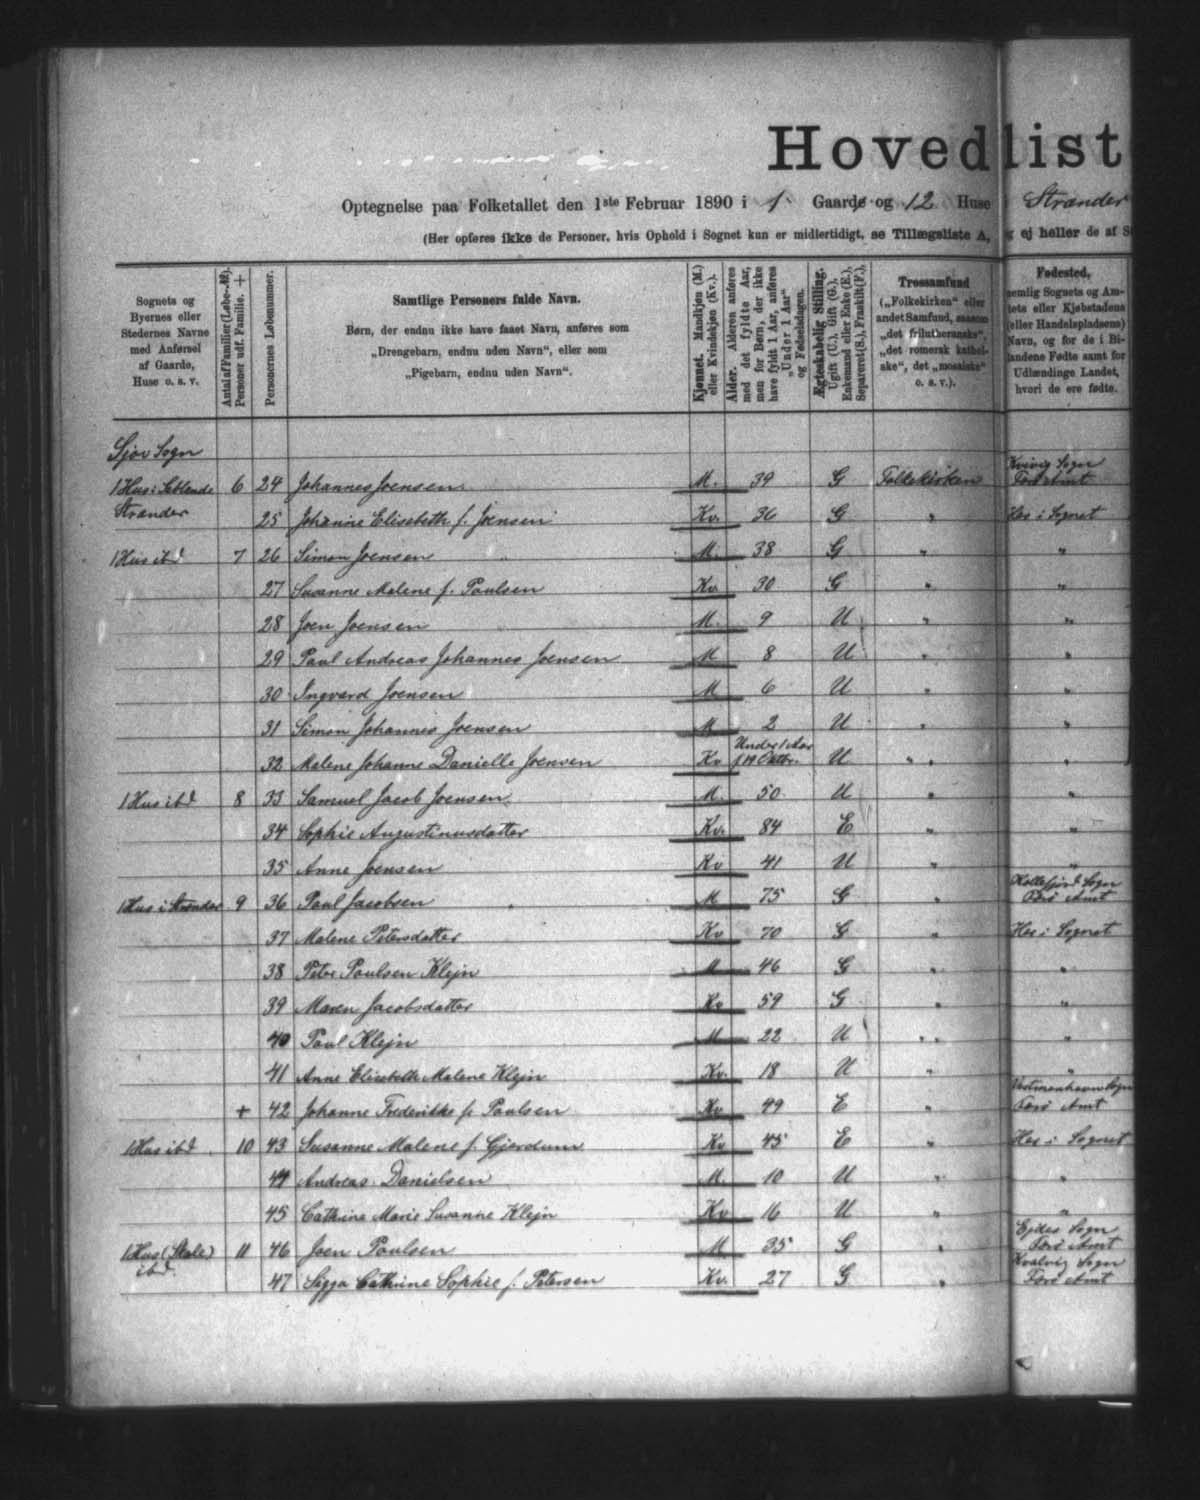 Hovedlist
Optegnelse paa Folketallet den 1ste Februar 1890 i 1 Gaarde og 12 Huse i Strænder
(Her opføres ikke de Personer, hvis Ophold i Sognet kun er midlertidigt, se Tillægsliste A, og ej heller de af S
Sognets og Byernes eller Stedernes Navne med Anførsel af Gaarde, Huse o. s. v.
Antal af Familier (Løbe-№). Personer udf. Familie. +
Personernes Løbenummer.
Samtlige Personers fulde Navn.
Børn, der endnu ikke have faaet Navn, anføres som
„Drengebarn, endnu uden Navn", eller som
„Pigebarn, endnu uden Navn".
Kjønnet. Mandkjøn (M.) eller Kvindekjøn (Kv.).
Alder. Alderen anføres med det fyldte Aar, men for Børn, der ikke have fyldt 1 Aar, anføres „Under 1 Aar" og Fødselsdagen.
Ægteskabelig Stilling. Ugift (U.), Gift (G.), Enkemand eller Enke (E.), Separeret (S.), Fraskilt (F.).
Trossamfund („Folkekirken" eller andet Samfund, saasom „det frilutheranske", „det romersk katholske", det „mosaiske" o. s. v.).
Fødested, nemlig Sognets og Amtets eller Kjøbstadens (eller Handelspladsens) Navn, og for de i Bilandene Fødte samt for Udlændinge Landet, hvori de ere fødte.
Sjov Sogn
1 Hus i 6 24 Johannes Joensen M. 39 G Folkekirken Kvivig Sogn Færø Amt
Strænder 25 Johanne Elisebeth f. Joensen Kv. 36 G " Her i Sognet
1 Hus ibd 7 26 Simon Joensen M. 38 G " "
27 Susanne Malene f. Poulsen Kv. 30 G " "
28 Joen Joensen M. 9 U " "
29 Paul Andreas Johannes Joensen M 8 U " "
30 Ingvard Joensen M 6 U " "
31 Simon Johannes Joensen M 2 U " "
32 Malene Johanne Danielle Joensen Kv Under 1 Aar f 19 Oktbr. U " "
1 Hus ibd 8 33 Samuel Jacob Joensen M. 50 U " "
34 Sophie Augustinusdatter Kv. 84 E " "
35 Anne Joensen Kv 41 U " "
1 Hus i Strænder 9 36 Poul Jacobsen M 75 G " Kollefjord Sogn Færø Amt
37 Malene Petersdatter Kv 70 G " Her i Sognet
38 Peter Poulsen Klejn M 46 G " "
39 Maren Jacobsdatter Kv 59 G " "
40 Poul Klejn M 22 U " "
41 Anne Elisebeth Malene Klejn Kv. 18 U " "
+ 42 Johanne Frederikke f. Poulsen Kv 49 E " Vestmanhavn Sogn Færø Amt
1 Hus ibd. 10 43 Susanne Malene f. Gjordum Kv 45 E " Her i Sognet
44 Andreas Danielsen M. 10 U " "
45 Cathrine Marie Susanne Klejn Kv 16 U " "
1 Hus (Skole) ibd. 11 46 Joen Poulsen M 35 G " Ejdes Sogn Færø Amt
47 Sigga Cathrine Sophie f. Petersen Kv. 27 G " Kvalvig Sogn Færø Amt